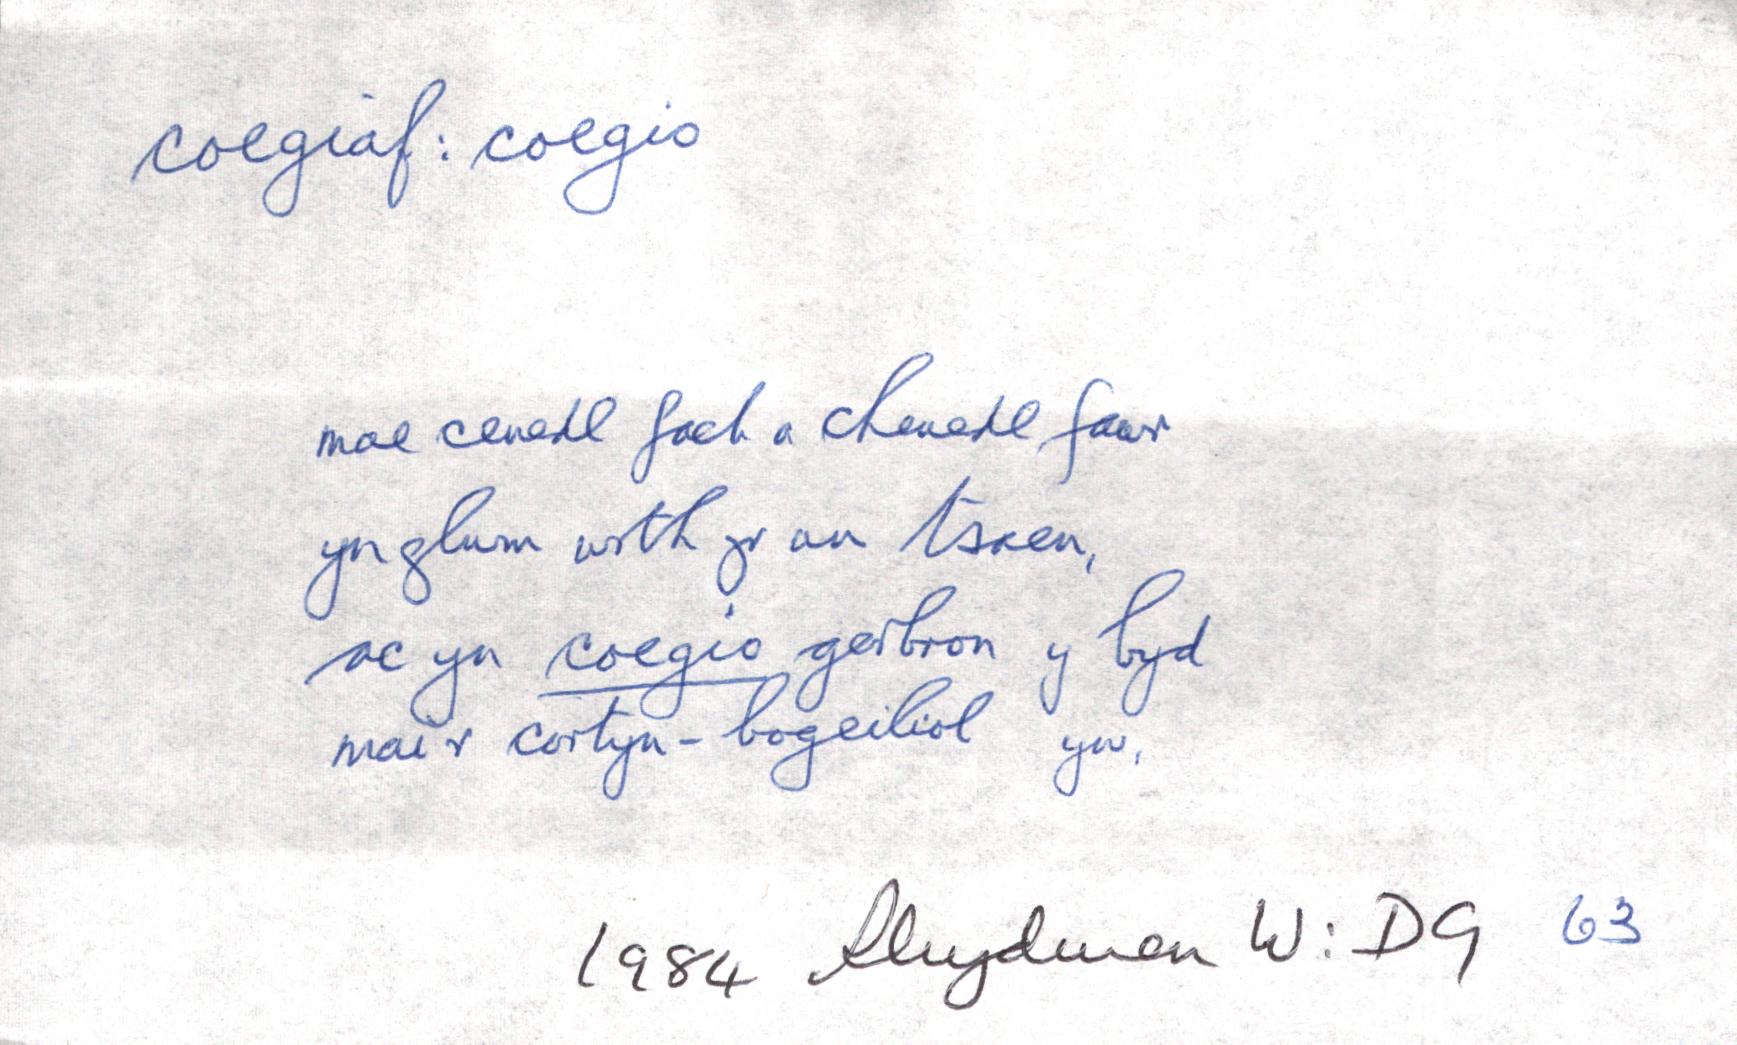 coegiaf: coegio
mae cenedl fach a chenedl fawr
ynglum wrth yr un tsaen,
ac yn coegio gerbron y byd
mai'r cortyn-bogeiliol yw.
1984 Rhydwen W: DG 63